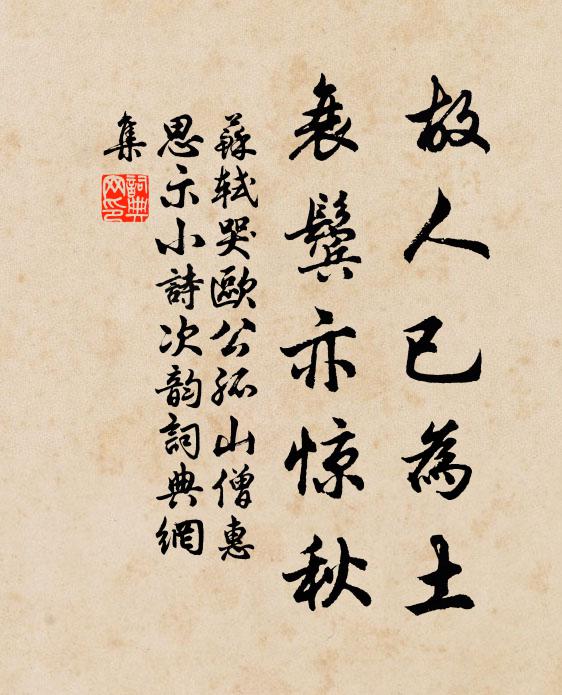 故人已為土
衰鬓亦惊秋
蘇軾哭歐公孤山僧惠
思示小詩次韵詞典網
集
詞典
网印